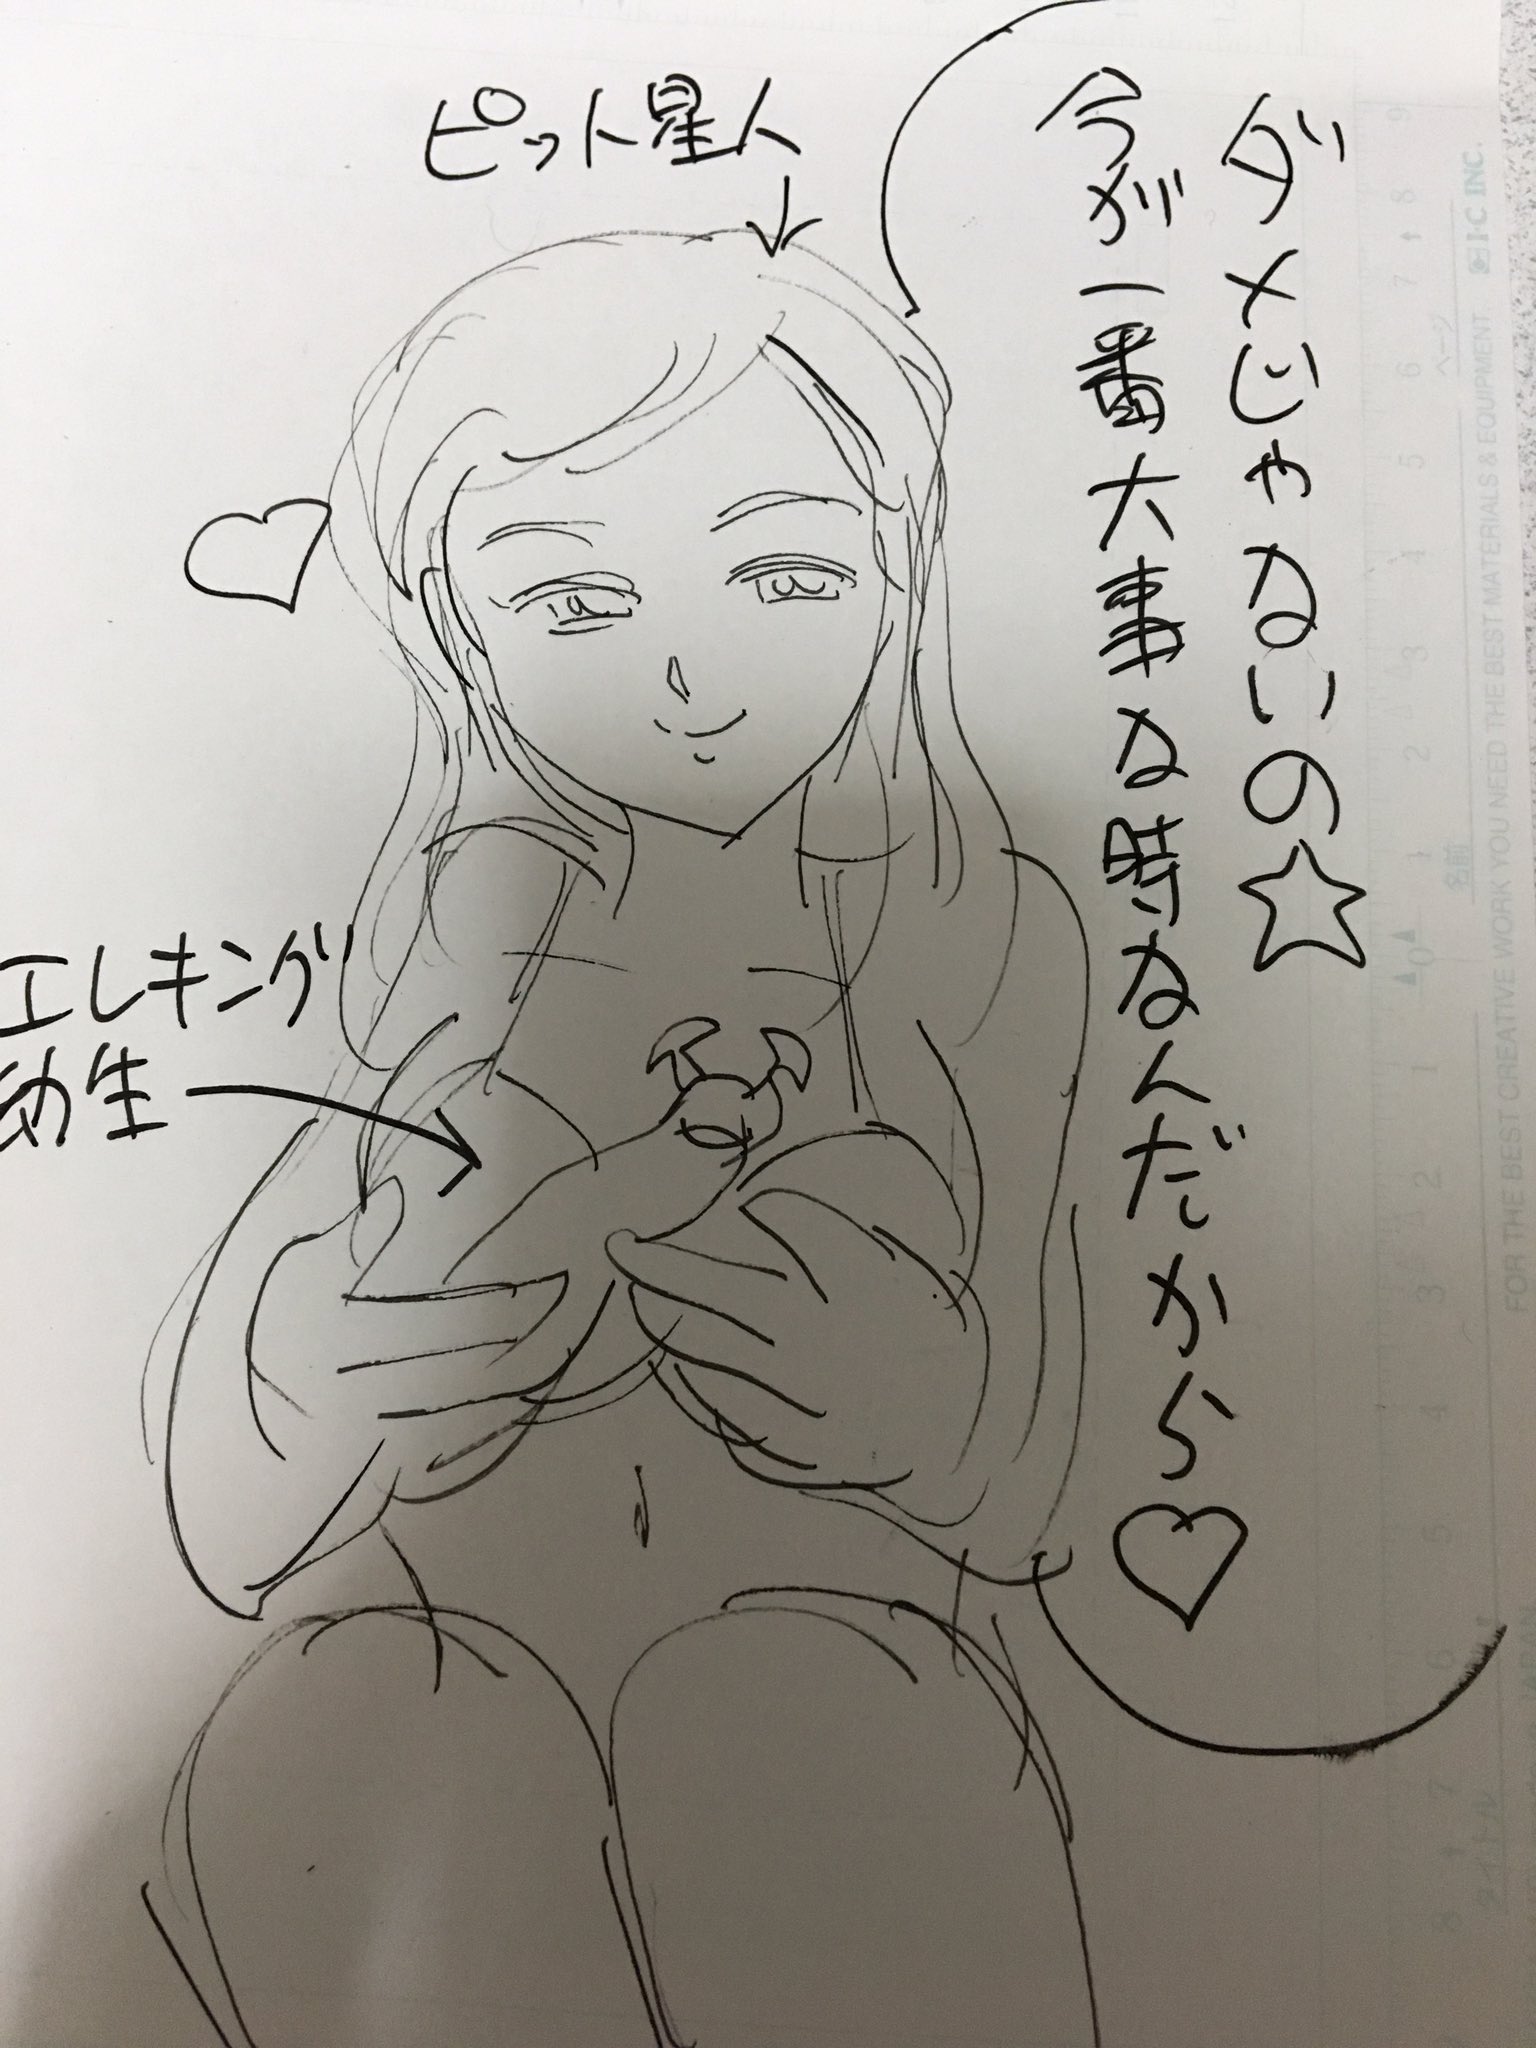 ピット星人
ダメじゃないの☆
今が一番大事な時なんだから♡
エレキング
幼生
FOR THE BEST CREATIVE WORK YOU NEED THE BEST MATERIALS & EQUIPMENT
I·C INC.
名前
ページ
タイトル